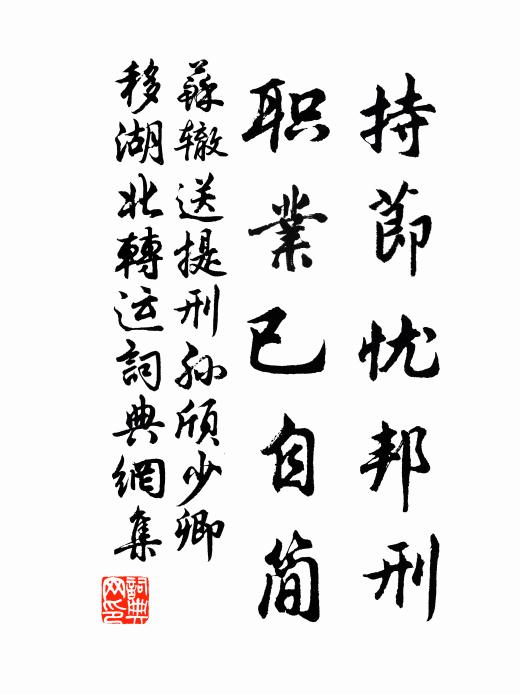 持節忧邦刑
职業已自简
蘇辙送提刑孙頎少卿
移湖北轉运詞典網集
詞典
网印